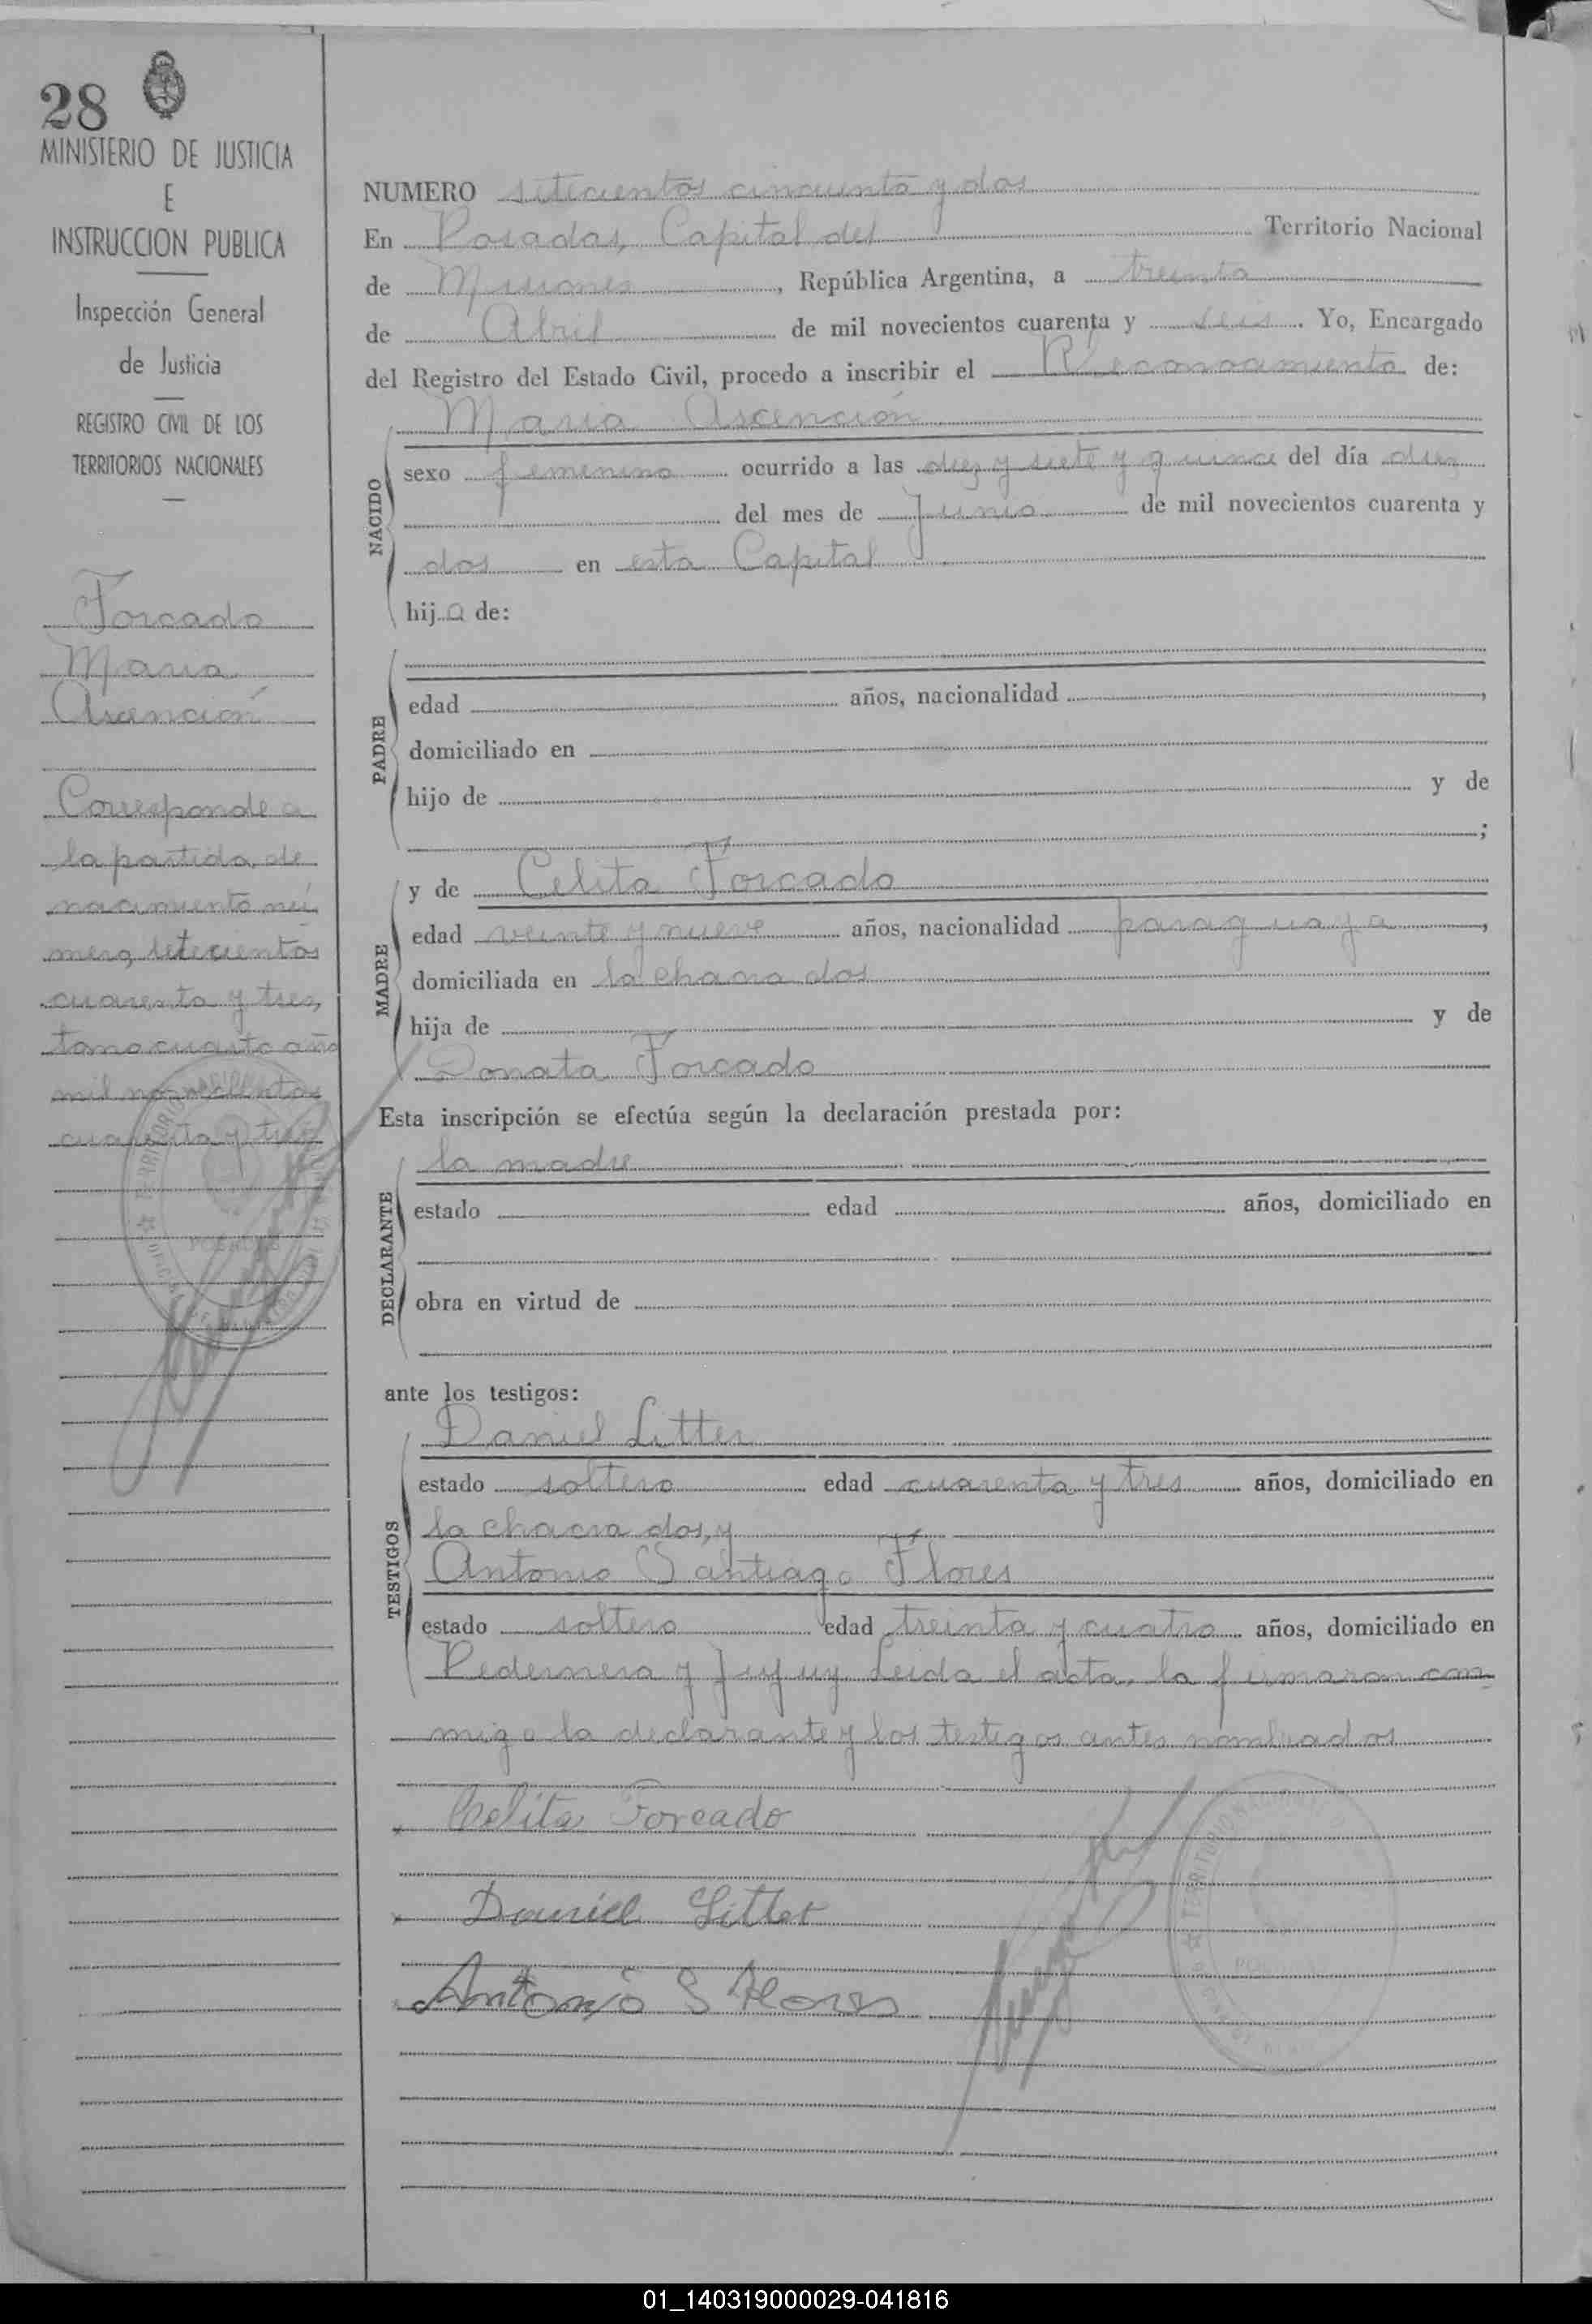 28
MINISTERIO DE JUSTICIA
E
INSTRUCCION PUBLICA
Inspección General
de Justicia
REGISTRO CIVIL DE LOS
TERRITORIOS NACIONALES
Forcado
Maria
Ascención
Corresponde a
la partida de
nacimiento nú
mero setecientos
cuarenta y tres,
tomo cuarto año
mil novecientos
cuarenta y tres
NUMERO setecientos cincuenta y dos
En Posadas, Capital del Territorio Nacional
de Misiones, República Argentina, a treinta
de Abril de mil novecientos cuarenta y seis. Yo, Encargado
del Registro del Estado Civil, procedo a inscribir el Reconocimiento de:
NACIDO
Maria Ascención
sexo femenino ocurrido a las diez y siete y quince del día diez
del mes de Junio de mil novecientos cuarenta y
dos en esta Capital
hija de:
PADRE
edad años, nacionalidad ,
domiciliado en
hijo de y de
;
MADRE
y de Celita Forcado
edad veinte y nueve años, nacionalidad paraguaya,
domiciliada en la chacra dos
hija de y de
Donata Forcado
Esta inscripción se efectúa según la declaración prestada por:
DECLARANTE
la madre
estado edad años, domiciliado en
obra en virtud de
ante los testigos:
TESTIGOS
Daniel Litter
estado soltero edad cuarenta y tres años, domiciliado en
la chacra dos, y
Antonio Santiago Flores
estado soltero edad treinta y cuatro años, domiciliado en
Pedernera y Jujuy. Leida el acta, la firmaron con
migo la declarante y los testigos antes nombrados
Celita Forcado
Daniel Litter
Antonio S Flores
01_140319000029-041816